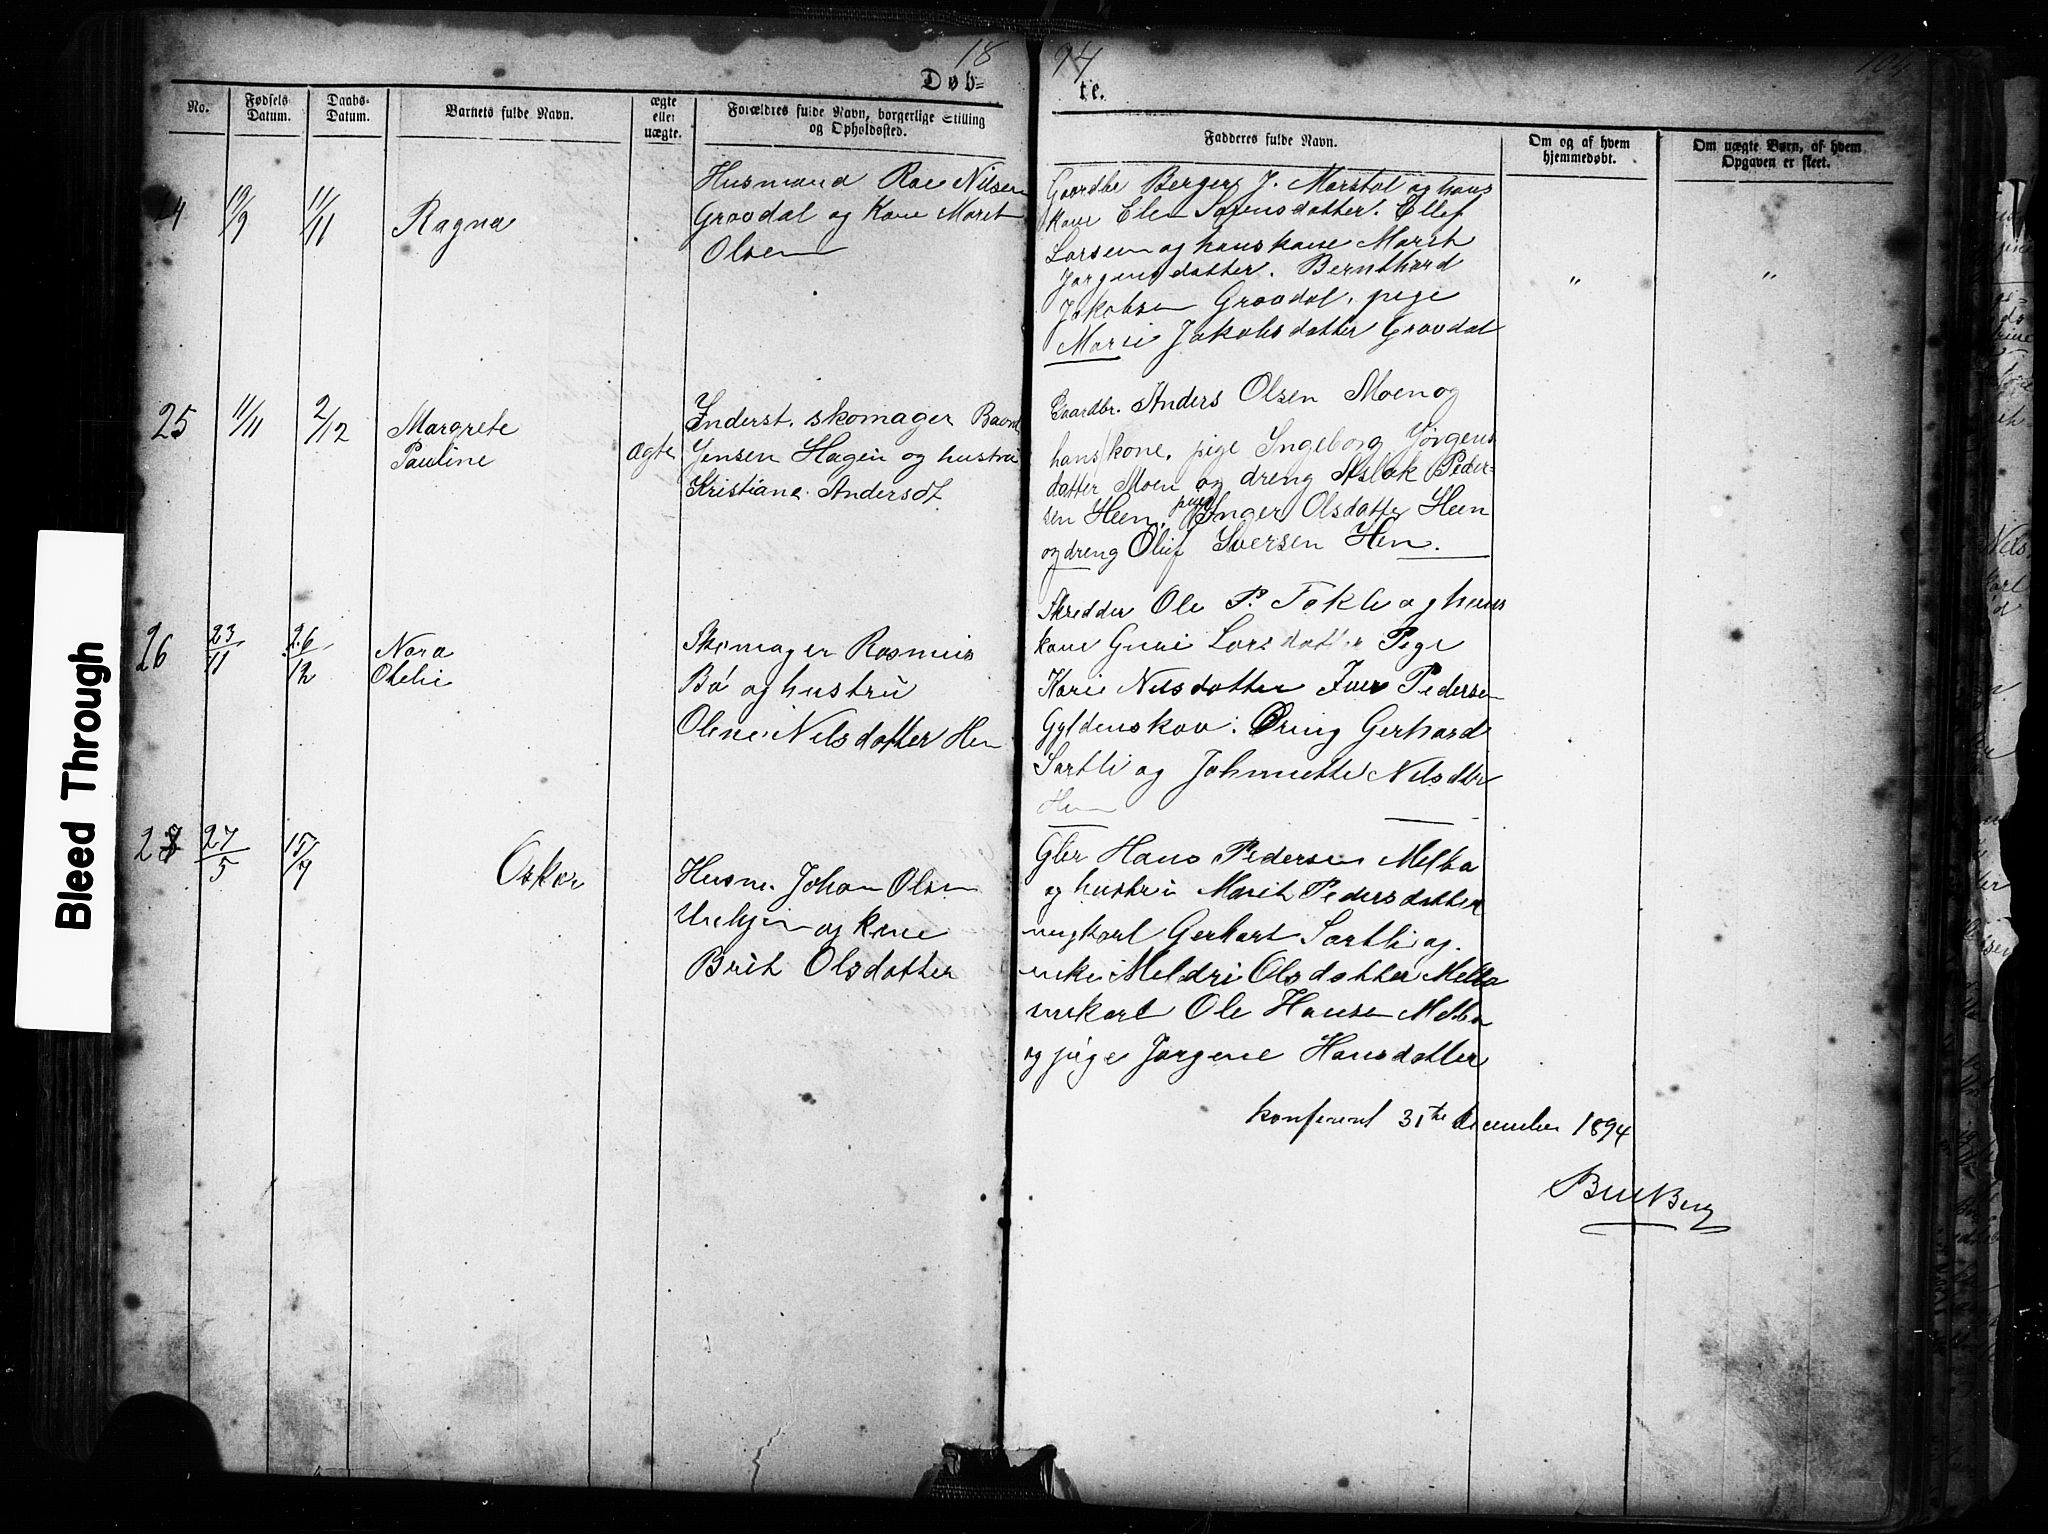 18 94
104
Døb= te.
No.
Fødsels Datum.
Daabs- Datum.
Barnets fulde Navn.
ægte eller uægte.
Forældres fulde Navn, borgerlige Stilling og Opholdssted.
Fadderes fulde Navn.
Om og af hvem hjemmedøbt.
Om uægte Børn, af hvem Opgaven er skeet.
24
19/9
11/11
Ragna
Husmand Roe Nilsen
Gravdal og Kone Marit
Olsen
Gaardbr Berger J. Marstal og hans
kone Elen Sørensdatter. Ellef
Larsen og hans kone Marit
Jørgensdatter. Bernthard
Jakobsen Gravdal, pige
Marie Jakobsdatter Gravdal
"
"
25
11/11
2/12
Margrete
Pauline
ægte
Inderst. skomager
Jensen Hagen og hustru
Kristiane Andersdt.
Gaardbr. Anders Olsen Moen og
hans kone, pige Ingeborg Jørgens
datter Moen og dreng Aslak Peder=
sen Heen, pige Inger Olsdatter Heen
og dreng Oluf Iversen Hen.
26
23/11
26/12
Nora
Otelie
Skomager Rasmus
Bø og hustru
Oline Nilsdatter Hen
Skredder Ole P. Fokli og hans
kone Guri Larsdatter Pige
Kari Nilsdatter Iver Pedersen
Gyldenskov: Dreng Gerhard
Sørtli og Johnette Nilsdtr
Hen
27/5
15/7
Oskar
Husm. Johan Olsen
og kone
Brit Olsdatter
Gbr Hans Pedersen Melbø
og hustru Marit Pedersdatter
ungkarl Gerhart Sørtli og
enke Meldri Olsdatter Melbø
unkarl Ole Hansen Melbø
og pige Jørgine Hansdatter
konfereret 31te december 1894
Bleed Through